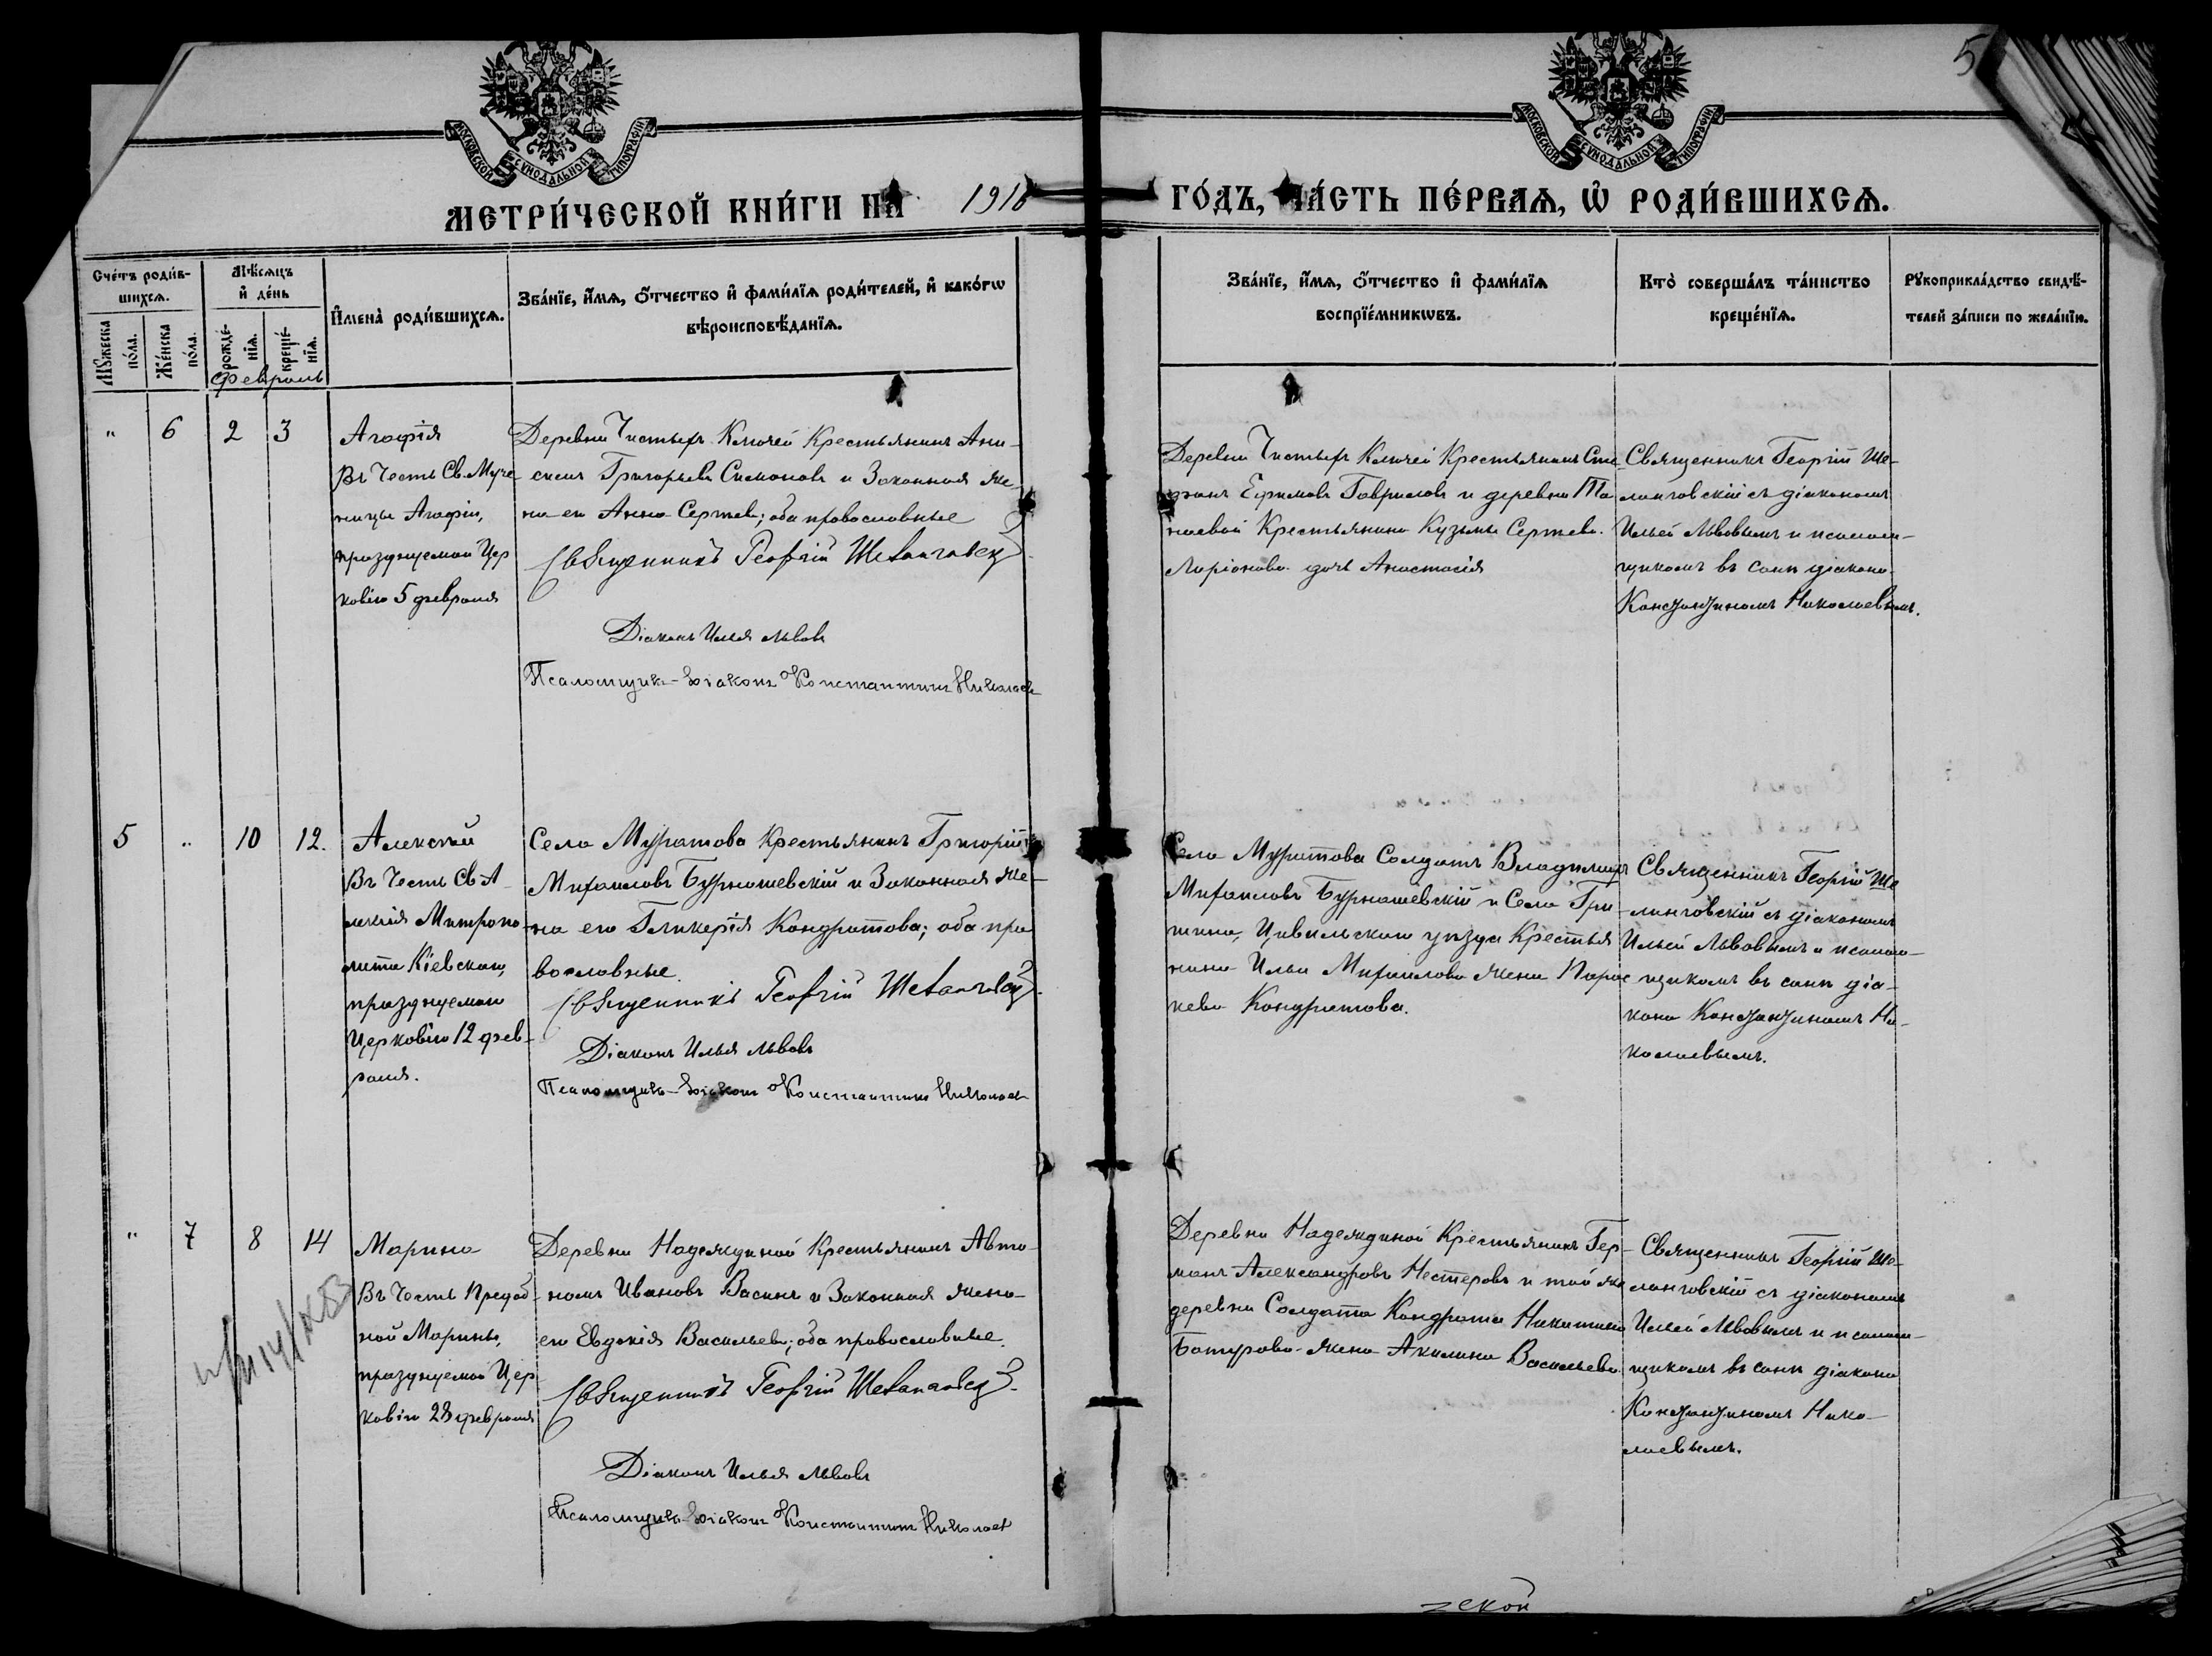 МОСКОВСКОЙ СѴНОДАЛЬНОЙ ТИПОГРАФІИ
МОСКОВСКОЙ СѴНОДАЛЬНОЙ ТИПОГРАФІИ
5
МЕТРИ́ЧЕСКОЙ КНИ́ГИ НА 1916 ГО́ДЪ, ЧА́СТЬ ПЕ́РВАѦ, Ѡ҆ РОДИ́ВШИХСѦ.
Сче́тъ роди́в-
шихсѧ.
Мꙋ́жеска
по́ла.
Же́нска
по́ла.
Мѣ́сѧцъ
и҆ де́нь
рожде́-
нїѧ.
креще́-
нїѧ.
И҆мена̀ роди́вшихсѧ.
Зва́нїе, и҆́мѧ, ѻ҆́тчество и҆ фами́лїѧ роди́телей, и҆ како́гѡ
вѣроисповѣ́данїѧ.
Зва́нїе, и҆́мѧ, ѻ҆́тчество и҆ фами́лїѧ
воспрїе́мникѡвъ.
Кто̀ соверша́лъ та́инство
креще́нїѧ.
Рꙋкоприкла́дство свидѣ́-
телей за́писи по жела́нїю.
Февраль
" 6 2 3
Агафія
Въ Честь Св. Муче-
ницы Агафіи,
празднуемой Цер
ковію 5 февраля
Деревни Чистыхъ Ключей Крестьянинъ Ани-
симъ Григорьевъ Симоновъ и Законная же-
на его Анна Сергеева; оба православные
Священникъ Георгій
Діаконъ Илья Львовъ
Псаломщикъ-діаконъ Константинъ Николаевъ
Деревни Чистыхъ Ключей Крестьянинъ Сте
фанъ Ефимовъ Гавриловъ и деревни Та
наевой Крестьянина Кузьмы Сергеева
Ларіонова дочь Анастасія
Священникъ Георгій Ше-
ланговскій съ діакономъ
Ильей Львовымъ и псалом-
щикомъ въ санѣ діакона
Константиномъ Николаевымъ.
5 " 10 12.
Алексѣй
Въ Честь Св. А-
лексія Митропо-
лита Кіевскаго,
празднуемаго
Церковію 12 фев-
раля.
Села Муратова Крестьянинъ Григорій
Михаиловъ Бурнашевскій и Законная же-
на его Гликерія Кондратова; оба пра
вославные.
Священникъ Георгій
Діаконъ Илья Львовъ
Псаломщикъ-діаконъ Константинъ Николаевъ
Села Муратова Солдатъ Владимиръ
Михаиловъ Бурнашевскій и Села Гри-
шина, Цивильскаго уѣзда Крестья
нина Ильи Михаилова жена Парас
кева Кондратова.
Священникъ Георгій Ше
ланговскій съ діакономъ
Ильей Львовымъ и псалом-
щикомъ въ санѣ діа-
кона Константиномъ Ни-
колаевымъ.
" 7 8 14
Марина
Въ Честь Преподоб-
ной Марины,
празднуемой Цер
ковію 28 февраля
Деревни Надеждиной Крестьянинъ Авто-
номъ Ивановъ Васинъ и Законная жена
его Евдокія Васильева; оба православные.
Священникъ Георгій
Діаконъ Илья Львовъ
Псаломщикъ-діаконъ Константинъ Николаевъ
Деревни Надеждиной Крестьянинъ Гер-
манъ Александровъ Нестеровъ и той же
деревни Солдата Кондрата Никитина
Батурова жена Акилина Васильева
Священникъ Георгій Ше-
ланговскій съ діакономъ
Ильей Львовымъ и псалом-
щикомъ въ санѣ діакона
Константиномъ Нико-
лаевымъ.
ской